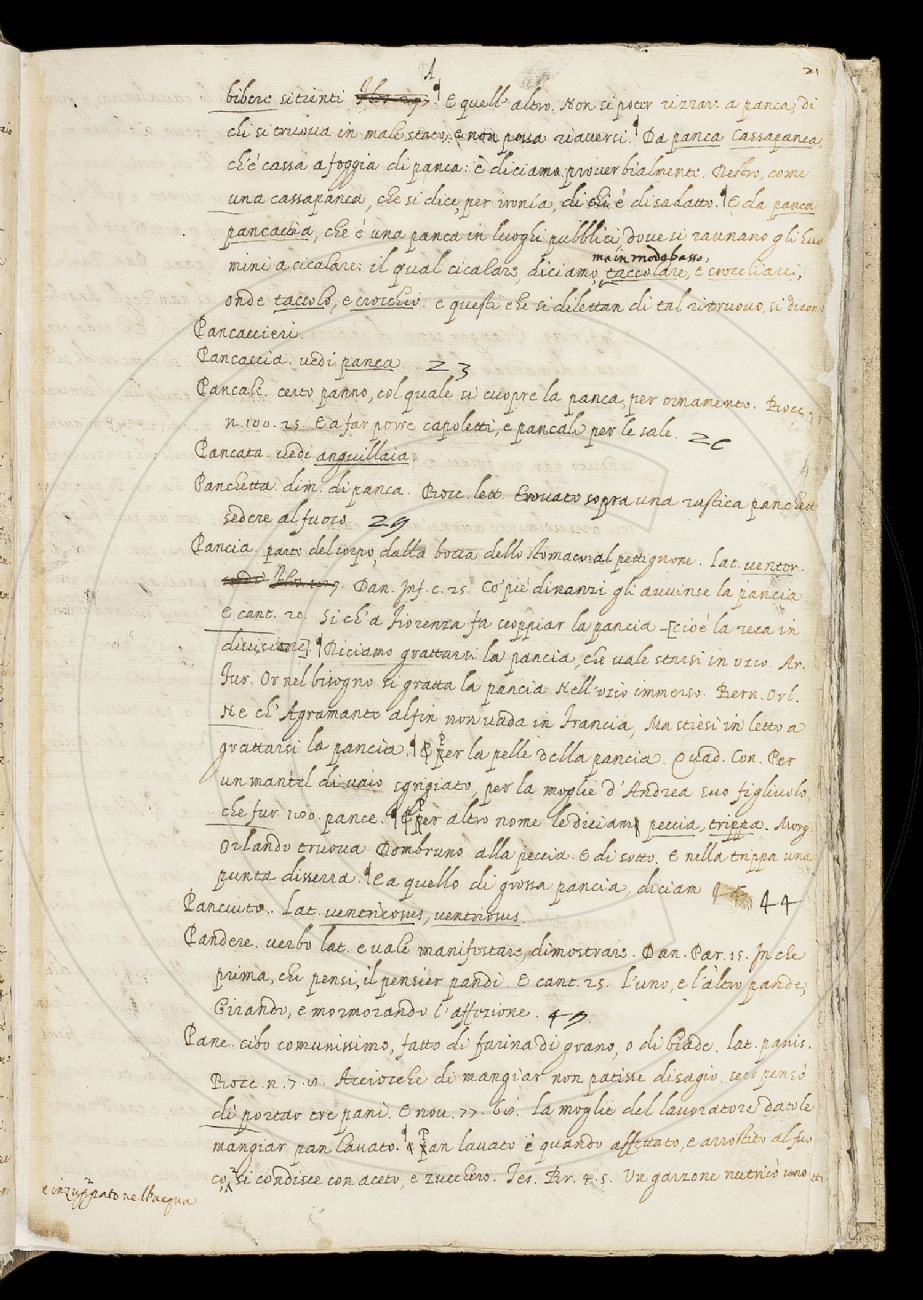 21
A
bibere sitienti E quell'altro. Non si poter rizzare a panca, di
chi si truova in male stato, e non possa riaversi. Da panca Cassapanca,
ch'è cassa a foggia di panca: e diciamo proverbialmente. Resto, come
una cassapanca, che si dice, per ironia, di chi è disadatto. E da panca
pancaccia, che è una panca in luoghi pubblici, dove si raunano gli huo
ma in modo basso,
mini a cicalare: il qual cicalare, diciamo, taccolare, e crocchiare,
onde taccolo, e crocchio: e questi che si dilettan di tal ritruovo, si dicono
Pancaccieri.
Pancaccia. vedi panca 23
Pancale. certo panno, col quale si cuopre la panca, per ornamento. Bocc.
n. 100. 25. E a far porre capoletti, e pancali per le sale. 26
Pancata. vedi anguillaia.
Panchetta. dim. di panca. Bocc. lett. Trovato sopra una rustica panchett
sedere al fuoco. 29
Pancia. parte del corpo, dalla bocca dello stomaco al pettignone. Lat. venter.
Dan. Inf. c. 25. Co' piè dinanzi gli avvinse la pancia
E cant. 20. Si ch'a Fiorenza fa scoppiar la pancia [cioè la reca in
divisione] Diciamo grattarsi la pancia, che vale starsi in ozio. Ar.
Fur. Or nel bisogno si gratta la pancia Nell'ozio immerso. Bern. Orl.
Ne ch'Agramante alfin non vada in Francia, Ma stiesi in letto a
grattarsi la pancia. E per la pelle della pancia. Quad. Con. Per
un mantel di vaio sgrigiato, per la moglie d'Andrea suo figliuolo
che fur 100. pance. Per altro nome le diciamo peccia, trippa. Morg.
Orlando truova Dombruno alla peccia. E di sotto. E nella trippa una
punta disserra. E a quello di grossa pancia, diciam 44
Panciuto. Lat. ventricosus, ventriosus.
Pandere. verbo lat. e vale manifestare, dimostrare. Dan. Par. 15. In che
prima, che pensi, il pensier pandi. E cant. 25. L'uno, e l'altro pande,
Girando, e mormorando l'affezione. 49
Pane. cibo comunissimo, fatto di farina di grano, o di biade. lat. panis.
Bocc. n. 7. Acciocchè di mangiar non patisse disagio, seco pensò
di portar tre pani. E nov. 77. 60. La moglie del lavoratore datole
mangiar pan lavato. Pan lavato è quando affettato, e arrostito al fuo
co, si condisce con aceto, e zucchero. Tes. Br. 4. 5. Un garzone nutricò uno
e inzuppato nell'acqua